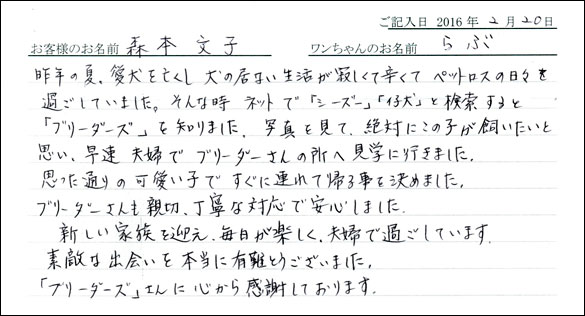 ご記入日 2016年 2月 20日
お客様のお名前 森本 文子 ワンちゃんのお名前 らぶ
昨年の夏、愛犬を亡くし 犬の居ない生活が寂しくて辛くて ペットロスの日々を
過ごしていました。そんな時 ネットで「シーズー」「仔犬」と検索すると
「ブリーダーズ」を知りました。写真を見て、絶対にこの子が飼いたいと
思い、早速 夫婦で ブリーダーさんの所へ 見学に行きました。
思った通りの可愛い子で すぐに連れて帰る事を決めました。
ブリーダーさんも親切、丁寧な対応で安心しました。
新しい家族を迎え、毎日が楽しく、夫婦で過ごしています。
素敵な出会いを本当に有難とうございました。
「ブリーダーズ」さんに心から感謝しております。